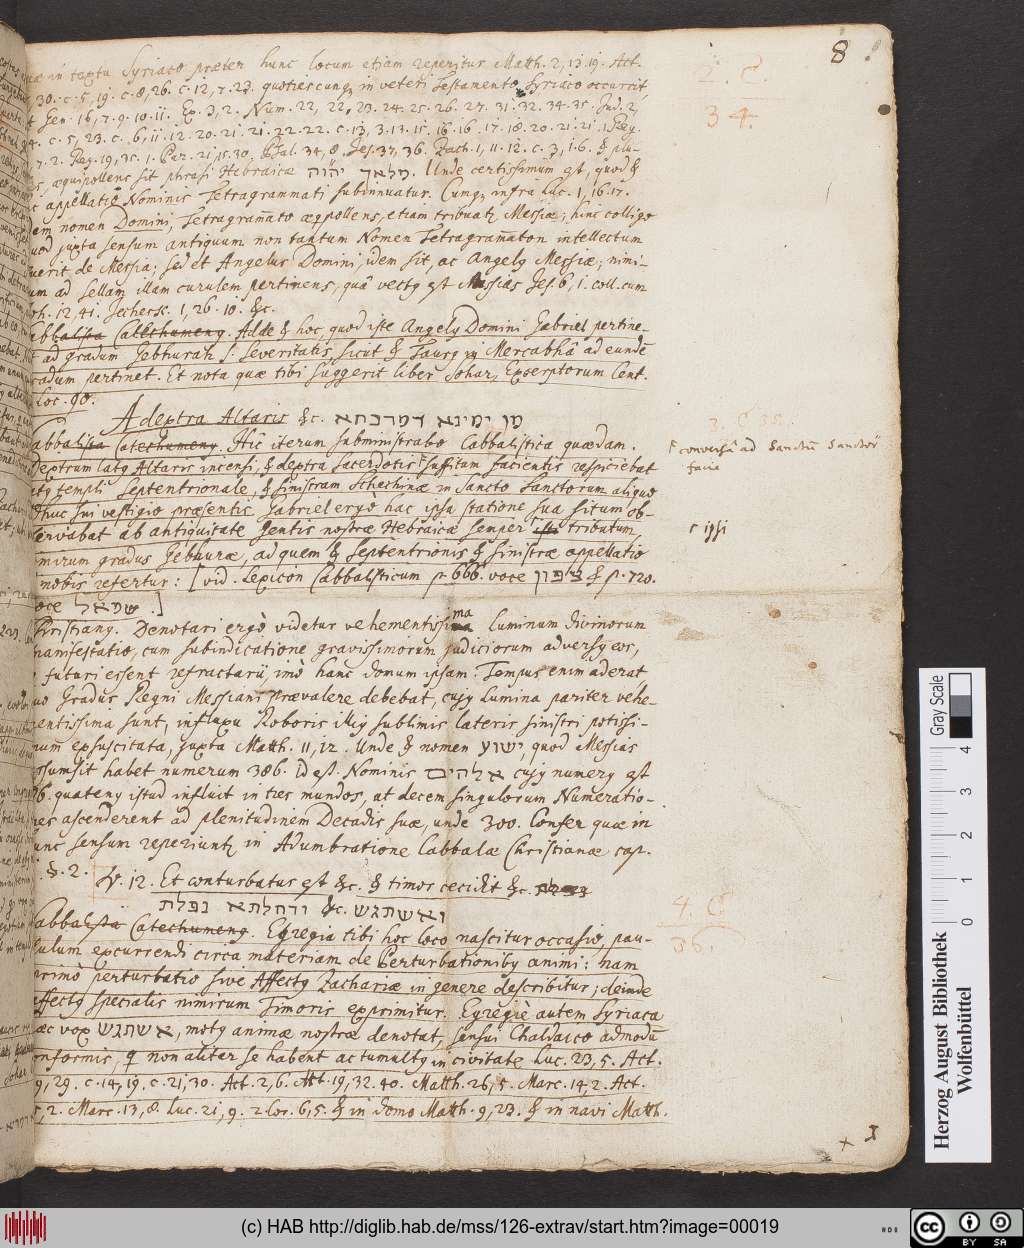 8
2. C.
34.
in textu Syriaco præter hunc locum etiam reperitur Matth. 2, 13. 19. Act.
30. c. 5, 19. c. 8, 26. c. 12, 7. 23. quotiescunq; in veteri Testamento Syriaco occurrit,
Gen. 16, 7. 9. 10. 11. Ex. 3, 2. Num. 22, 22, 23. 24. 25. 26. 27. 31. 32. 34. 35. Jud. 2,
4. c. 5, 23. c. 6, 11. 12. 20. 21. 21. 22. 22. c. 13, 3. 13. 15. 16. 16. 17. 18. 20. 21. 21. 1. Reg.
7. 2. Reg. 19, 35. 1. Par. 21, 15. 30. Psal. 34, 8. Jes. 37, 36. Zach. 1, 11. 12. c. 3, 1. 6. & plu-
æquipollens sit phrasi Hebraicæ מלאך יהוה. Unde certissimum est, quod &
appellatio Nominis Tetragrammati subinnuatur. Cumq; infra Luc. 1, 16. 17.
nomen Domini, Tetragram̄ato æqpollens, etiam tribuatr Messiæ; hinc colligo
juxta sensum antiquum non tantum Nomen Tetragram̄aton intellectum
fuerit de Messia; sed et Angelus Domini, idem sit, ac Angelus Messiæ; nimi-
rum ad sellam illam curulem pertinens, quâ vectus est Messias Jes. 6, 1. coll. cum
Joh. 12, 41. Jechesk. 1, 26. 10. &c.
Cabbalista Catechumenus. Adde & hoc, quod iste Angelus Domini Gabriel pertine-
at ad gradum Gebhurah s. Severitatis, sicut & Taurus in Mercabhâ ad eundē
gradum pertinet. Et nota quæ tibi suggerit liber Sohar, Excerptorum Cent.
Loc. 90.
3. C 35.
A dextra Altaris &c. מן ימינא דמדבחא
Cabbalista Catechumenus. Hîc iterum subministrabo Cabbalistica quædam.
Dextrum latus Altaris incensi, & dextra Sacerdotis ⸢suffitum facientis respiciebat
⸢ conversâ ad Sanctū Sanctorū facie
templi Septentrionale, & sinistram Schechinæ in Sancto Sanctorum aliquo
adhuc sui vestigio præsentis. Gabriel ergò hac ipsa statione sua situm ob-
servabat ab antiquitate gentis nostræ Hebraicæ semper ⸢ tributum,
⸢ ipsi
nimirum gradus Gebhuræ, ad quem & Septentrionis & sinistræ appellatio
nobis refertur: [vid. Lexicon Cabbalisticum p. 666. voce צפון & p. 720.
voce שמאל.]
Christianus. Denotari ergò videtur vehementissima luminum divinorum
manifestatio, cum subindicatione gravissimorum judiciorum adversus eos,
futuri essent refractarii, imò hanc domum ipsam. Tempus enim aderat
quo Gradus Regni Messiani prævalere debebat, cujus lumina pariter vehe-
mentissima sunt, influxu Roboris illius sublimis lateris sinistri potissi-
mum exsuscitata, juxta Matth. 11, 12. Unde & nomen ישוע, quod Messias
assumsit habet numerum 386. id est. Nominis אלהים cujus numerus est
86. quatenus istud influit in tres mundos, ut decem singulorum Numeratio-
nes ascenderent ad plenitudinem Decadis suæ, unde 300. Confer quæ in
hunc sensum reperiuntr in Adumbratione Cabbalæ Christianæ cap.
§. 2.
4. C
36.
V. 12. Et conturbatus est &c. & timor cecidit &c.
ואשתגש &c. ודחלתא נפלת
Cabbalista Catechumenus. Egregia tibi hoc loco nascitur occasio, pau-
lulum excurrendi circa materiam de Perturbationibus animi: nam
primò perturbatio sive Affectus Zachariæ in genere describitur; deinde
affectus specialis nimirum Timoris exprimitur. Egregiè autem Syriaca
hæc vox אשתגש, motus animæ nostræ denotat, sensui Chaldaico admodū
conformis, q non aliter se habent ac tumultus in civitate Luc. 23, 5. Act.
19, 29. c. 14, 19. c. 21, 30. Act. 2, 6. Act. 19, 32. 40. Matth. 26, 5. Marc. 14, 2. Act.
2. Marc. 13, 8. Luc. 21, 9. 2. Cor. 6, 5. & in domo Matth. 9, 23. & in navi Matth.
Herzog August Bibliothek
Wolfenbüttel
Gray Scale
0 1 2 3 4
(c) HAB http://diglib.hab.de/mss/126-extrav/start.htm?image=00019
HAB
cc BY SA